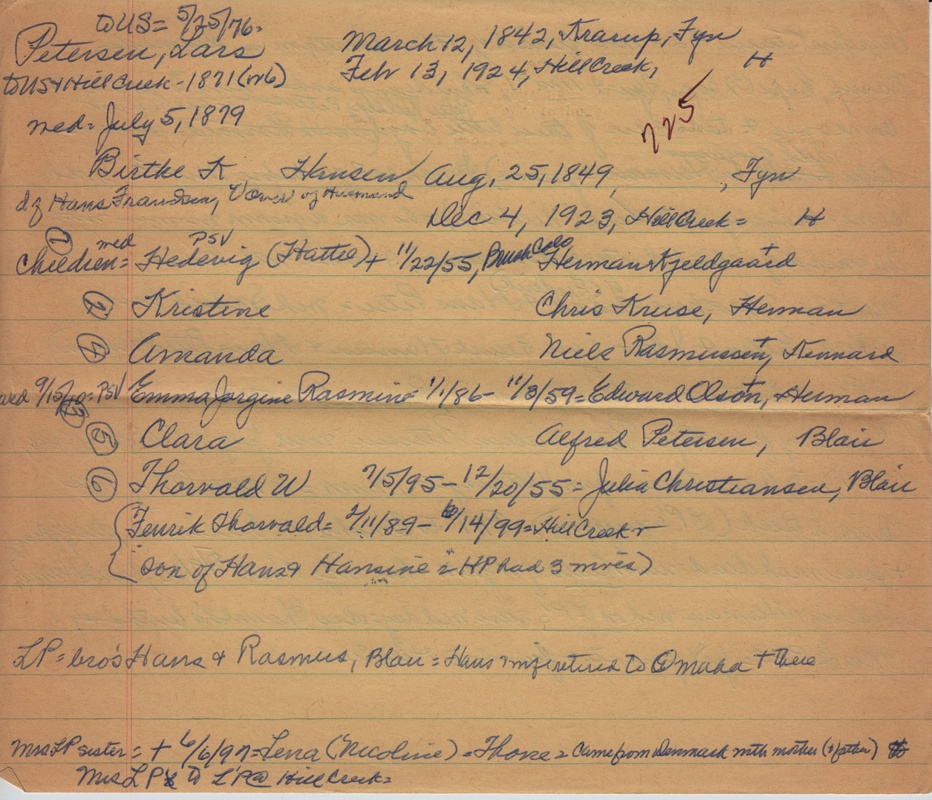 to US = 5/25/76 =
Petersen, Lars March 12, 1842, Krarup, Fyn
to US & Hill Creek - 1871 (orb) Feb 13, 1924, Hill Creek, H
med = July 5, 1879 725
Birthe K Hansen Aug, 25, 1849, , Fyn
d of Hans Frandsen, Vower of Husmand
Dec 4, 1923, Hill Creek = H
med PSV
① Children = Hedevig (Hattie) + 11/22/55, Brush Colo Herman Kjeldgaard †
② Kristine Chris Kruse, Herman
④ Amanda Niels Rasmussen †, Kennard
med 9/15/10 = PSV Emma Jorgine Rasmine = 1/1/86 - 11/3/59 = Edward Olson †, Herman
③
⑤ Clara Alfred Petersen, Blair
⑥ Thorvald W 7/5/95 - 12/20/55 = Julia Christiansen, Blair
Henrik Thorvald = 2/11/89 - 6/14/99 = Hill Creek r
son of Hans & Hansine = HP had 3 mves)
LP = bro's Hans & Rasmus, Blair = Hans retired to Omaha † there
Mrs LP sister = + 6/6/97 = Lena (Nicoline) = Thone = Came from Denmark with mother (s/father)
Mrs LP & to LP @ Hill Creek =